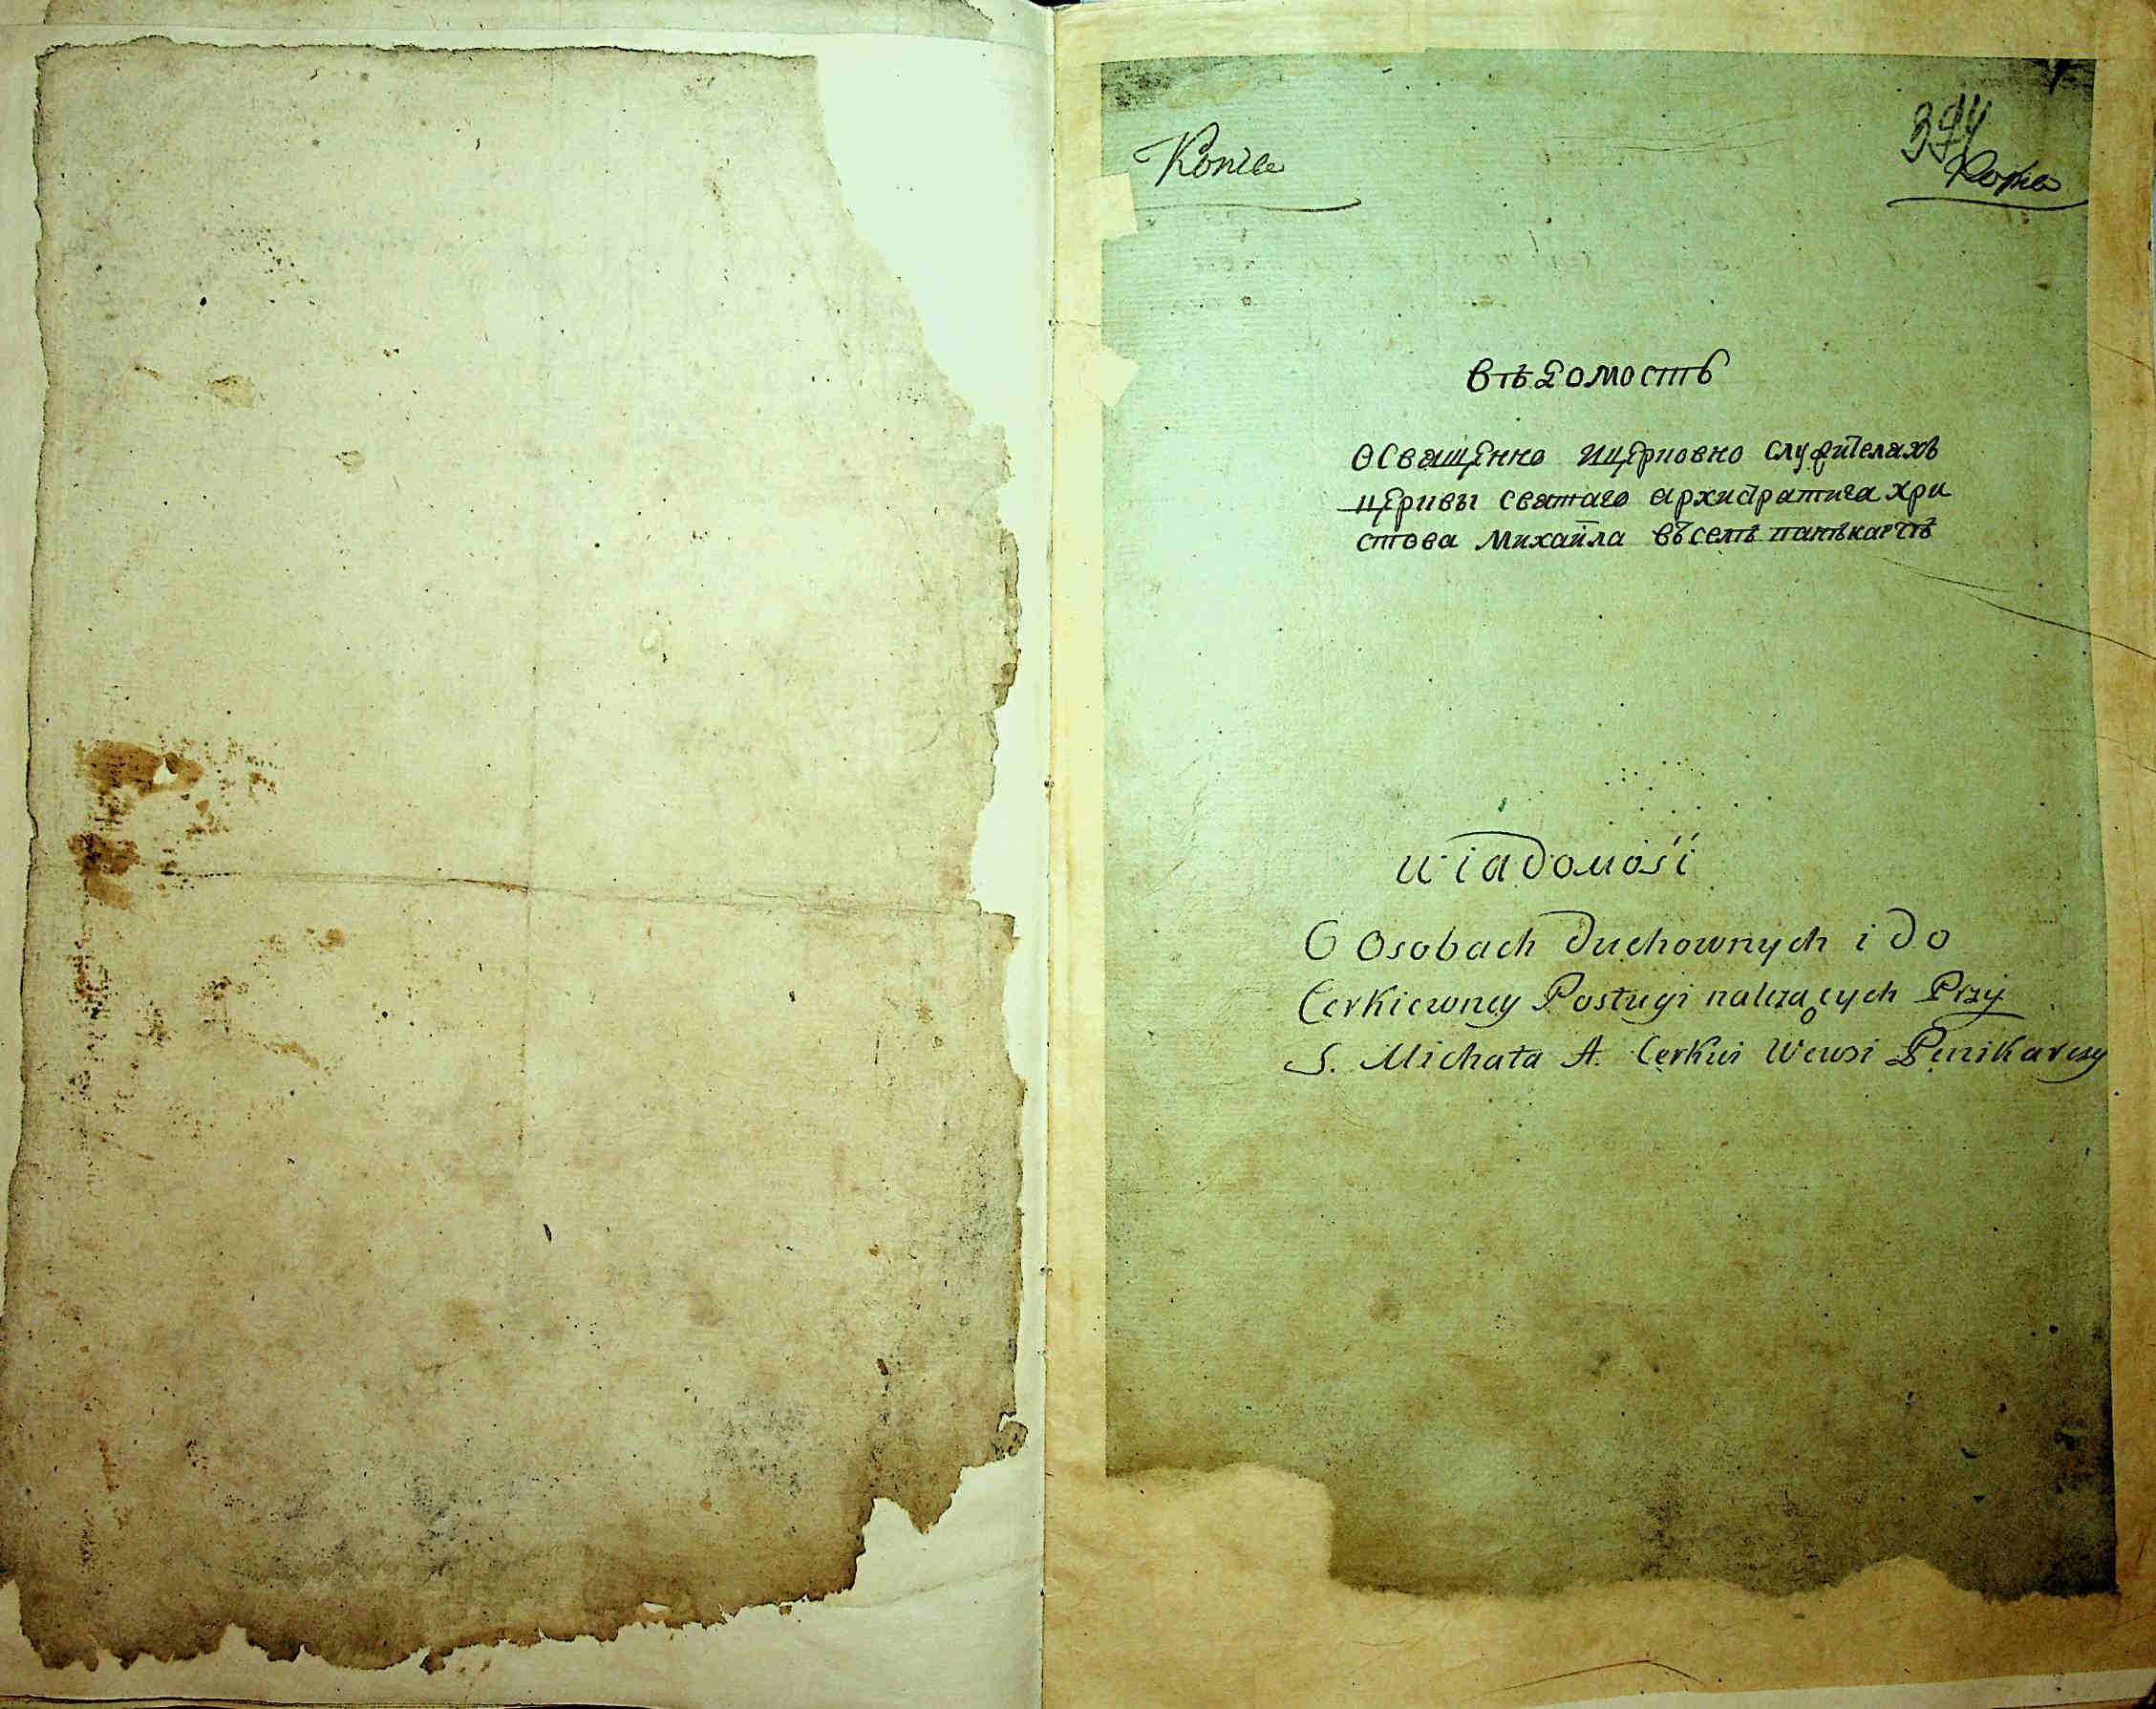 Копіа
394
Копіа
вѣдомость
О Священно ицерковно служителахъ
церквы святаго архистратига хри
стова михаила въселѣ панѣкарчѣ
wiadomość
O Osobach duchownych i do
Cerkiewney Posługi należących Przy
S. Michała A. Cerkwi Wewsi Penikarczy